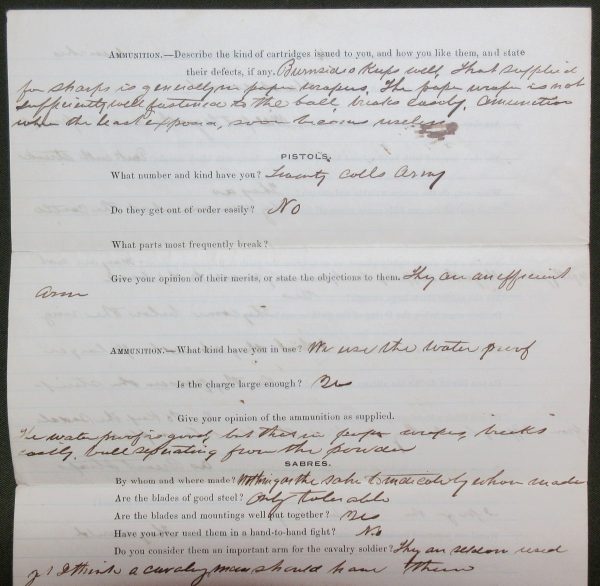 AMMUNITION.—Describe the kind of cartridges issued to you, and how you like them, and state
their defects, if any. Burnsides Keeps well, That supplied
for sharps is generally in paper wrapers. The paper wraper is not
sufficiently well fastened to the ball, breaks easily. Amunition
when the least exposed, soon becomes useless
PISTOLS.
What number and kind have you? Twenty colts Army
Do they get out of order easily? No
What parts most frequently break?
Give your opinion of their merits, or state the objections to them. They are an efficient
arm
AMMUNITION.—What kind have you in use? We use the water proof
Is the charge large enough? Yes
Give your opinion of the ammunition as supplied.
The water proof is good, but that in paper wrapes, breaks
easily, ball separating from the powder
SABRES.
By whom and where made? Nothing on the sabre to indicate by whom made
Are the blades of good steel? Only tolerable
Are the blades and mountings well put together? Yes
Have you ever used them in a hand-to-hand fight? No
Do you consider them an important arm for the cavalry soldier? They are seldom used
I think a cavalry man should have them